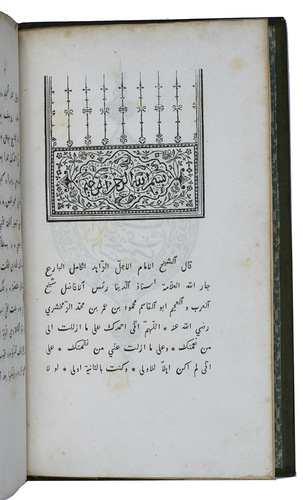 بسم الله الرحمن الرحيم
قال الشيخ الامام الاجل الزاهد الكامل البارع
جار الله العلامة استاذ الدنيا رئيس الافاضل شيخ
العرب و العجم ابو القاسم محمود بن عمر بن محمد الزمخشري
رضي الله عنه * اللهم اني احمدك على ما ازللت الي
من نعمتك * وعلى ما ازلت عني من نقمتك * على
اني لم اكن اهلا للاولى * وكنت بالثانية اولى * لو لا